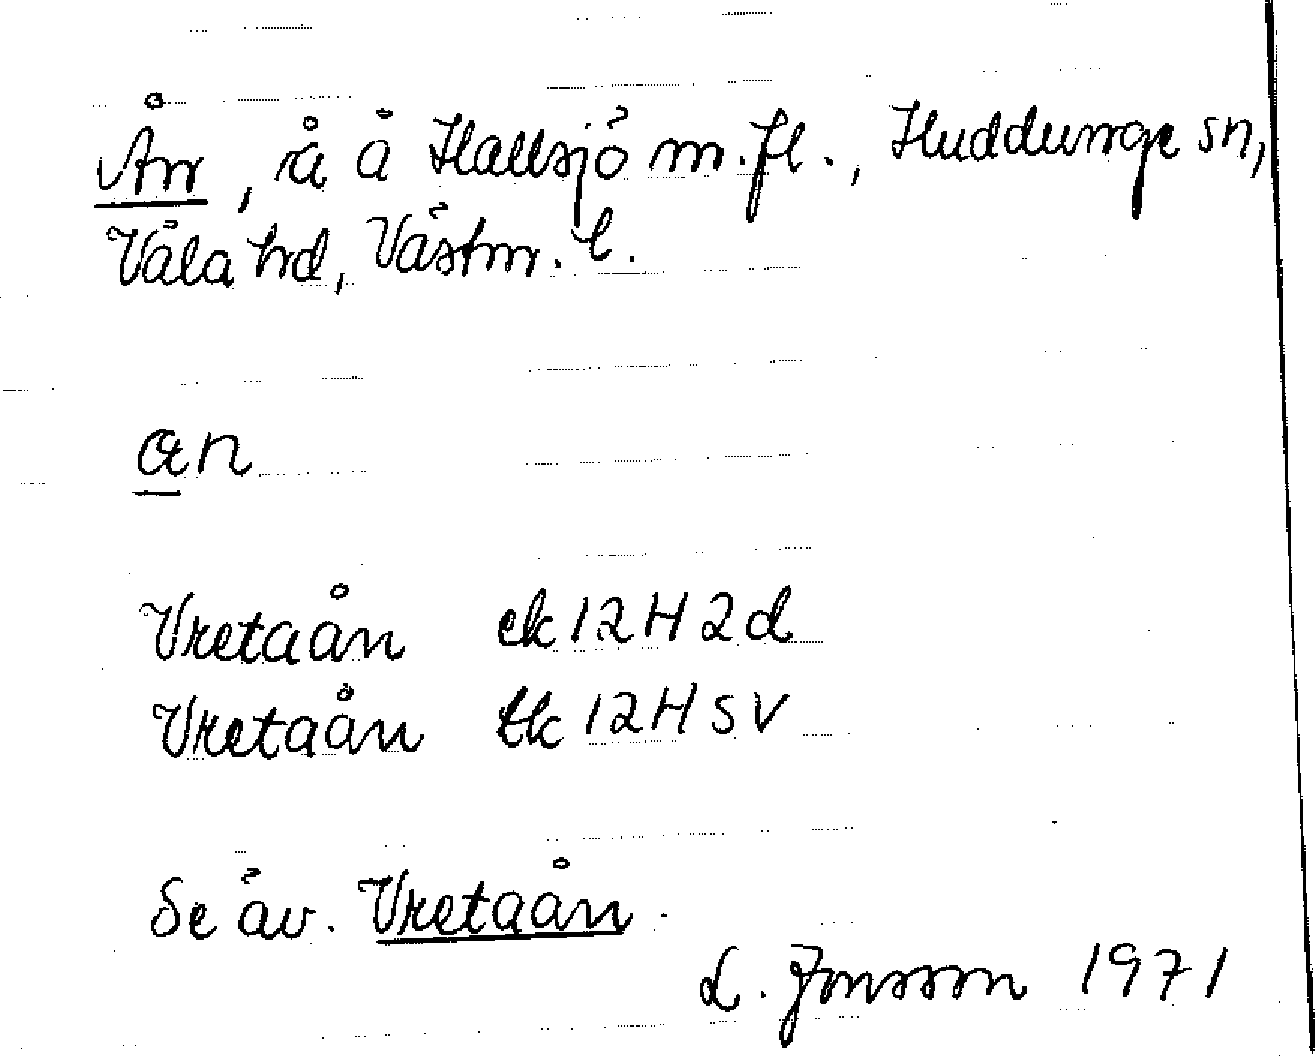 Ån, å å Hallsjö m.fl., Huddunge sn,
Våla hd, Västm. l.
ɑn
Vretaån ek 12H 2d
Vretaån tk 12H SV
Se äv. Vretaån.
L. Jonsson 1971